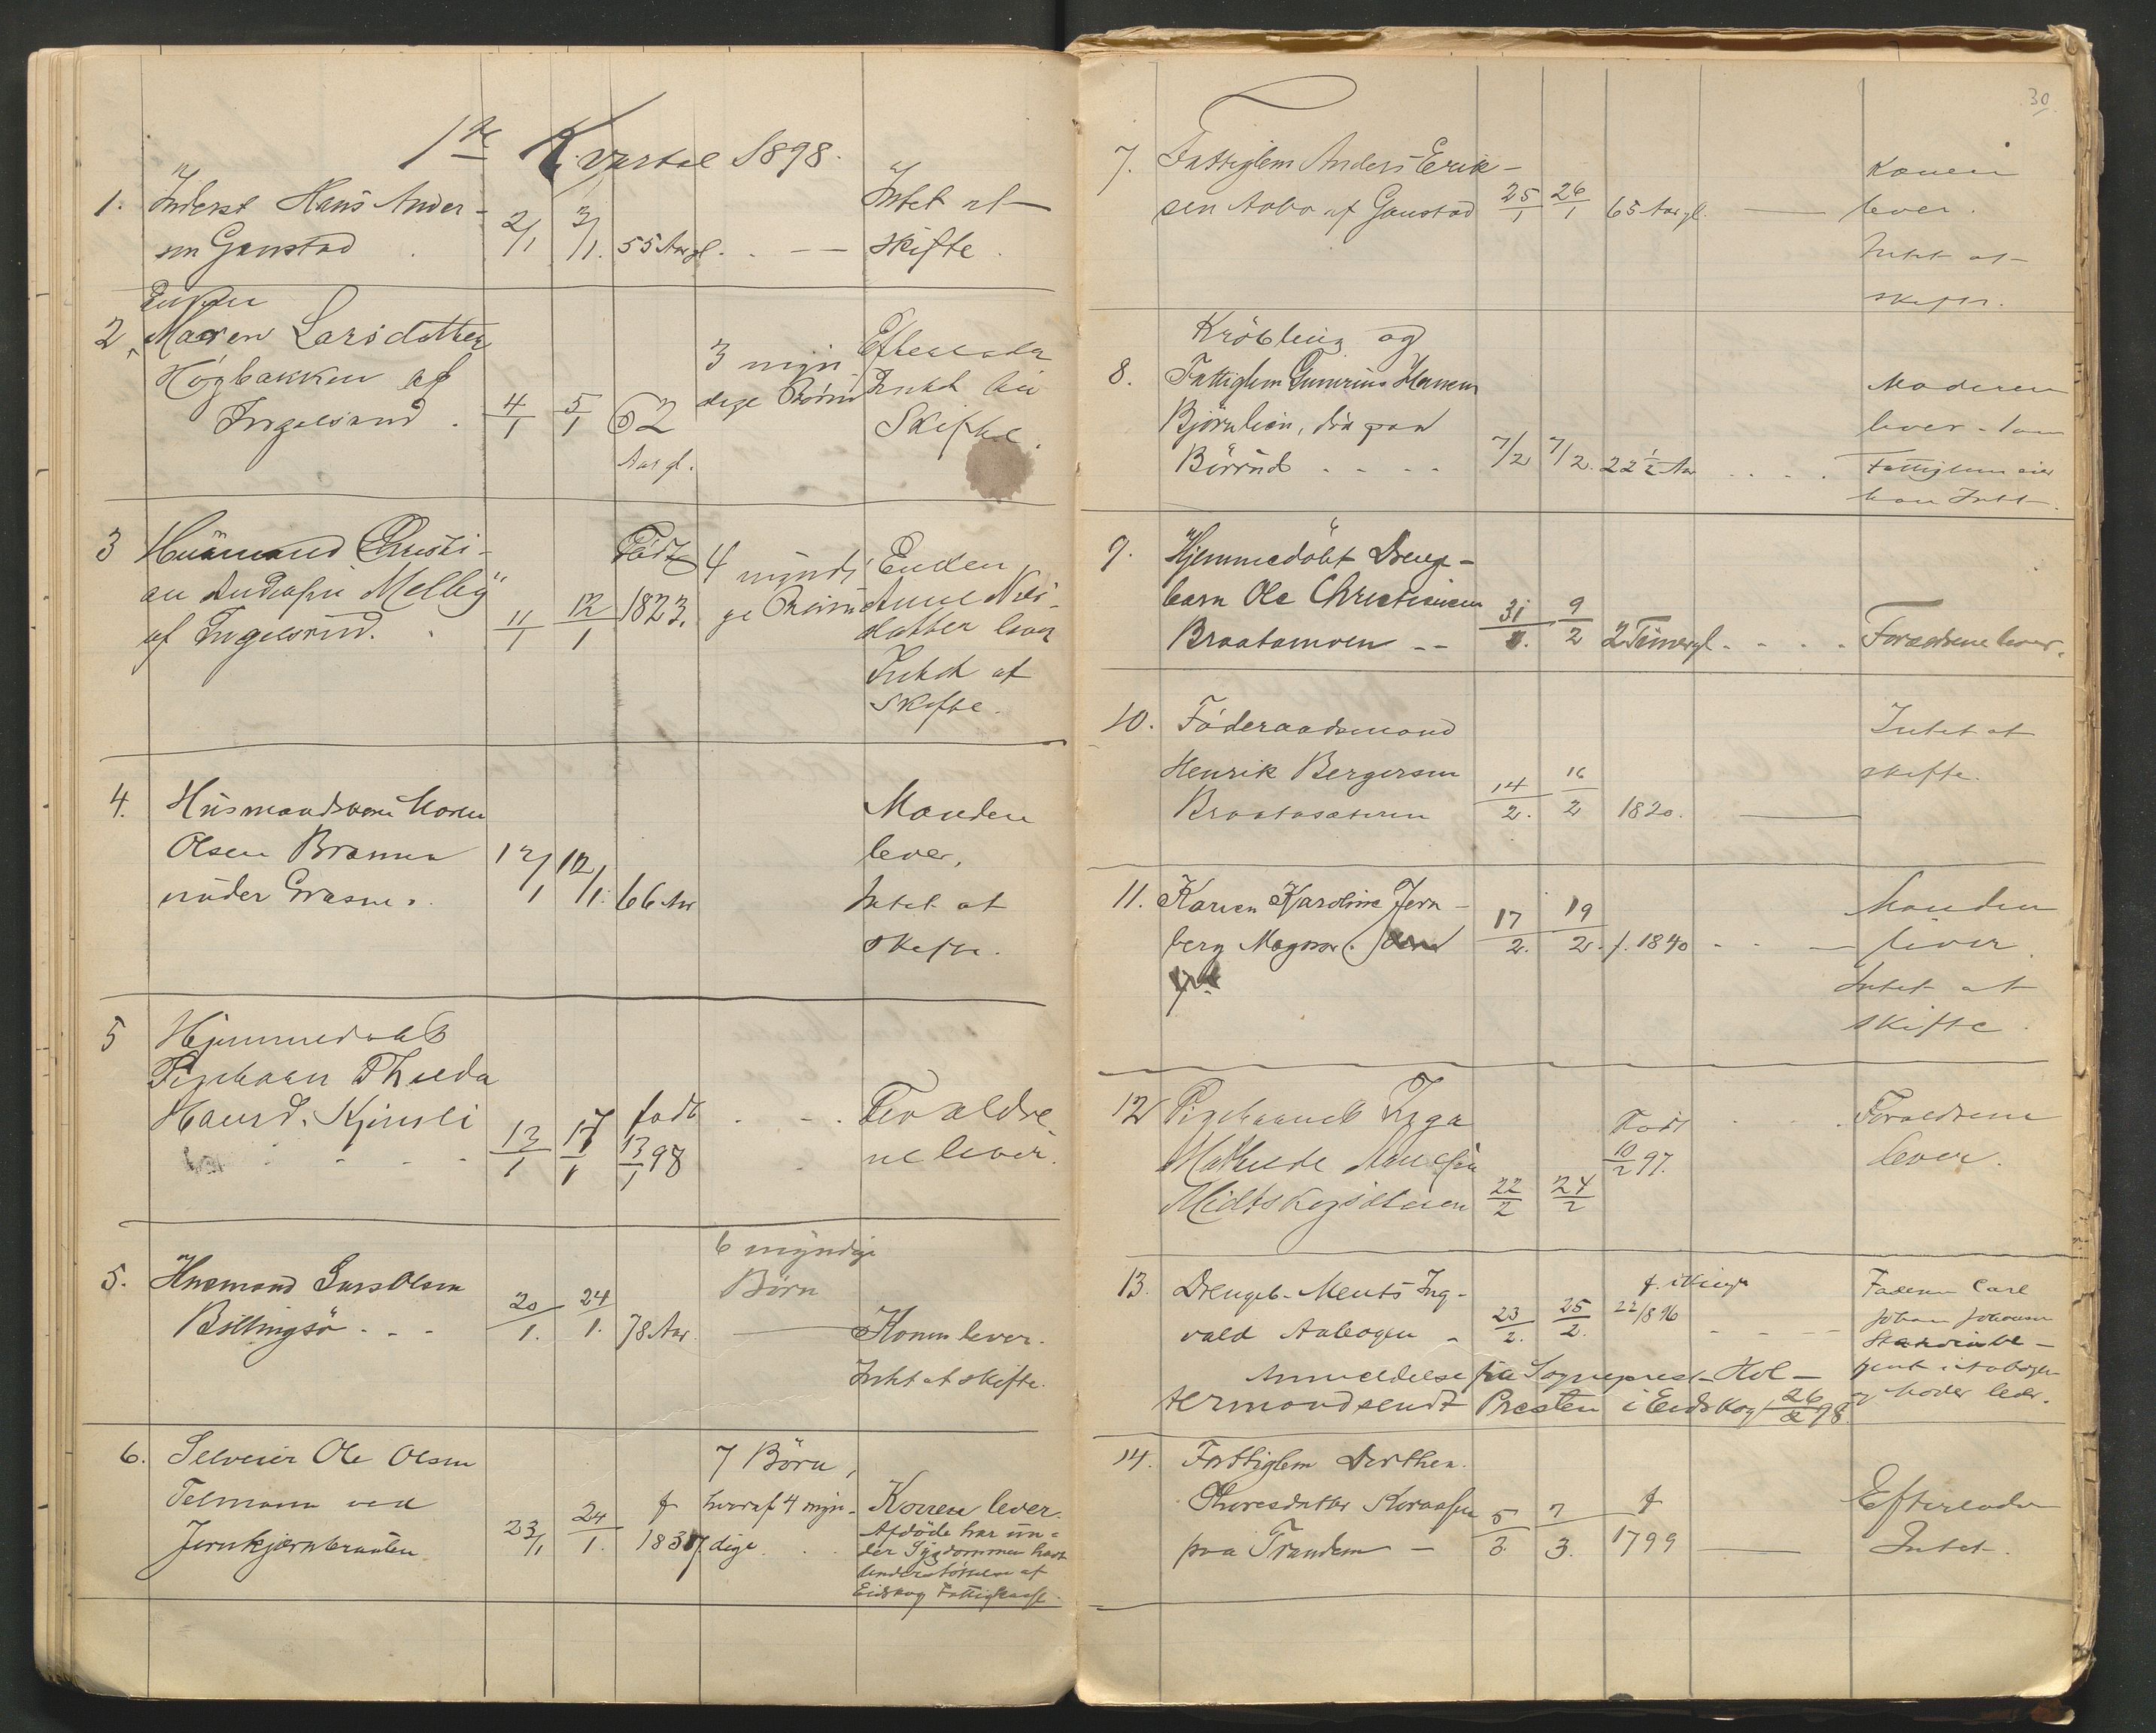 1ste Kvartal 1898.
1. Inderst Hans Ander-
sen Gaustad 2/1 3/1. 55 Aar gl. Intet at
skifte.
Enken
2. Maren Larsdatter
Högbakken af
Ingelsrud. 4/1 5/1 62
Aar gl.
3 myn-
dige Börn
Efterlader
Intet til
Skifte.
3 Husmand Christi-
an Andersen Melby
af Ingelsrud. 11/1 12/1
Född
1823.
4 myndi-
ge Börn
Enken
Anne Nils-
datter lever
Intet at
Skifte.
4. Husmandskone Maren
Olsen Bramen
under Grasmo. 12/1 12/1. 66 Aar
Manden
lever,
Intet at
skifte.
5 Hjemmedöbt
Pigebarn Thilda
Hansd. Kjinsli 13/1 17/1
född
13/1 98
Forældre-
ne lever.
5. Husmand Lars Olsen
Billingsö 20/1. 24/1. 78 Aar.
6 myndige
Börn
Konen lever.
Intet at skifte.
6. Selveier Ole Olsen
Telmann ved
Jernkjærnbraaten 23/1 24/1. f.
1837.
7 Börn,
hvoraf 4 myn-
dige.
Konen lever.
Afdöde har un-
der Sygdommen havt
Understöttelse af
Eidskog Fattigkasse.
30.
7. Fattiglem Anders Erik-
sen Aabo af Gaustad 25/1 26/1 65 Aar gl.
Konen
lever.
Intet at
skifte.
Kröbling og
8. Fattiglem Gunerius Hansen
Björnlien, död paa
Börrud 7/2 7/2. 22 1/2 Aar
Moderen
lever - som
Fattiglem eier
han Intet.
9. Hjemmedöbt Drenge-
barn Ole Christiansen
Braatamoen 31/1. 9/2 2 Timer gl. Forældrene lever.
10. Föderaadsmand
Henrik Bergersen
Braatasæteren 14/2. 16/2 1820.
Intet at
skifte.
11. Karen Karoline Jern-
berg Magnor. 17/2. 19/2. f. 1840
Manden
lever.
Intet at
skifte.
12 Pigebarnet Inga
Mathilde
Midtskogsæteren 22/2 24/2
Född
10/2 97.
Forældrene
lever.
13. Drengeb. Ments Ing-
vald Aabogen 23/2. 25/2.
f. i
22/8 96
Faderen Carl
Johan Johansen
i Aabogen
og Moder lever.
Anmeldelse fra Sogneprest Hol-
termand sendt Presten i Eidskog 26/2 98
14. Fattiglem Dorthea
Thoresdatter
paa Trandem 5/3. 7/3. f.
1799
Efterlader
Intet.